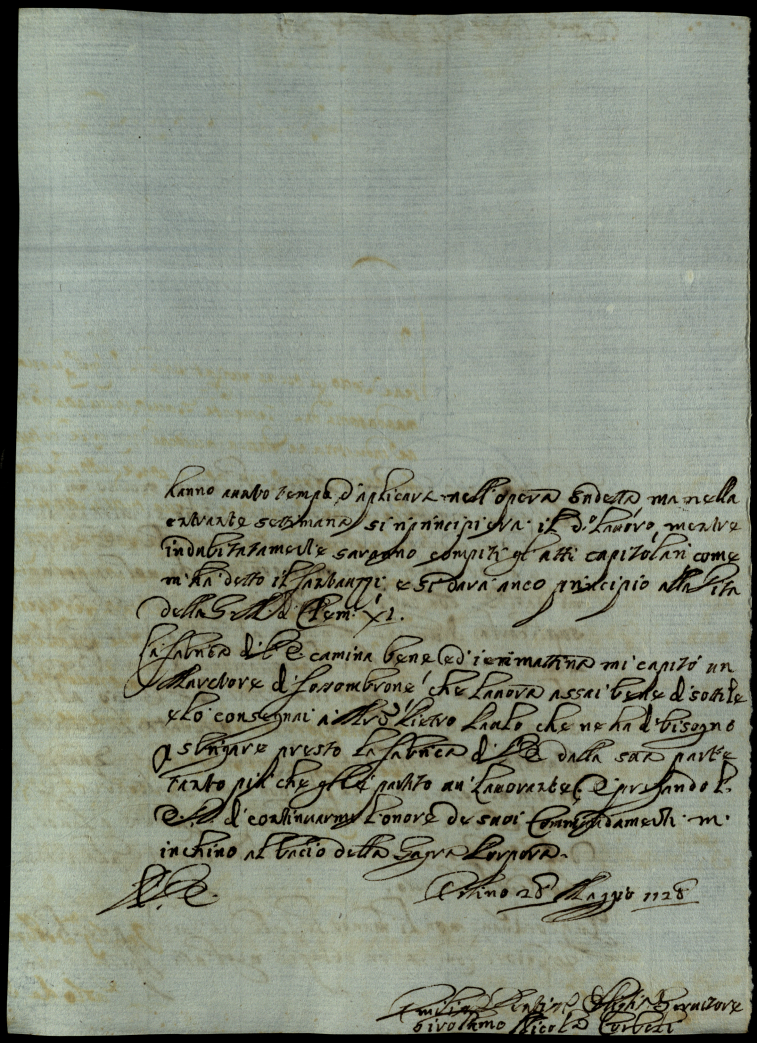 hanno auuto tempo d'aplicare nell'opera sudetta ma nella
entrante settimana si riprincipierà il d.º lauoro, mentre
indubitatamente saranno compiti gl'atti capitolari come
m'ha detto il, e si darà anco principio alla Vita
della di Clem. XI.
La fabrica di V.E. camina bene, ed ieri mattina mi capitò un
di Fossombrone, che lauora assai bene di sottile
e lo consegnai a M.ro Pietro Paulo che ne ha di bisogno
p sbrigare presto la fabrica di V.E. dalla sua parte
tanto più che gl'è partito un lauorante, e pregando l'
E.V. di continuarmi l'onore de suoi Commandamenti m'
inchino al bacio della Sagra Porpora.
V.E.
Urbino 28 Maggio 1728
Umiliss. Deuotiss. Obligatiss. Seruitore
Girolamo Nicola